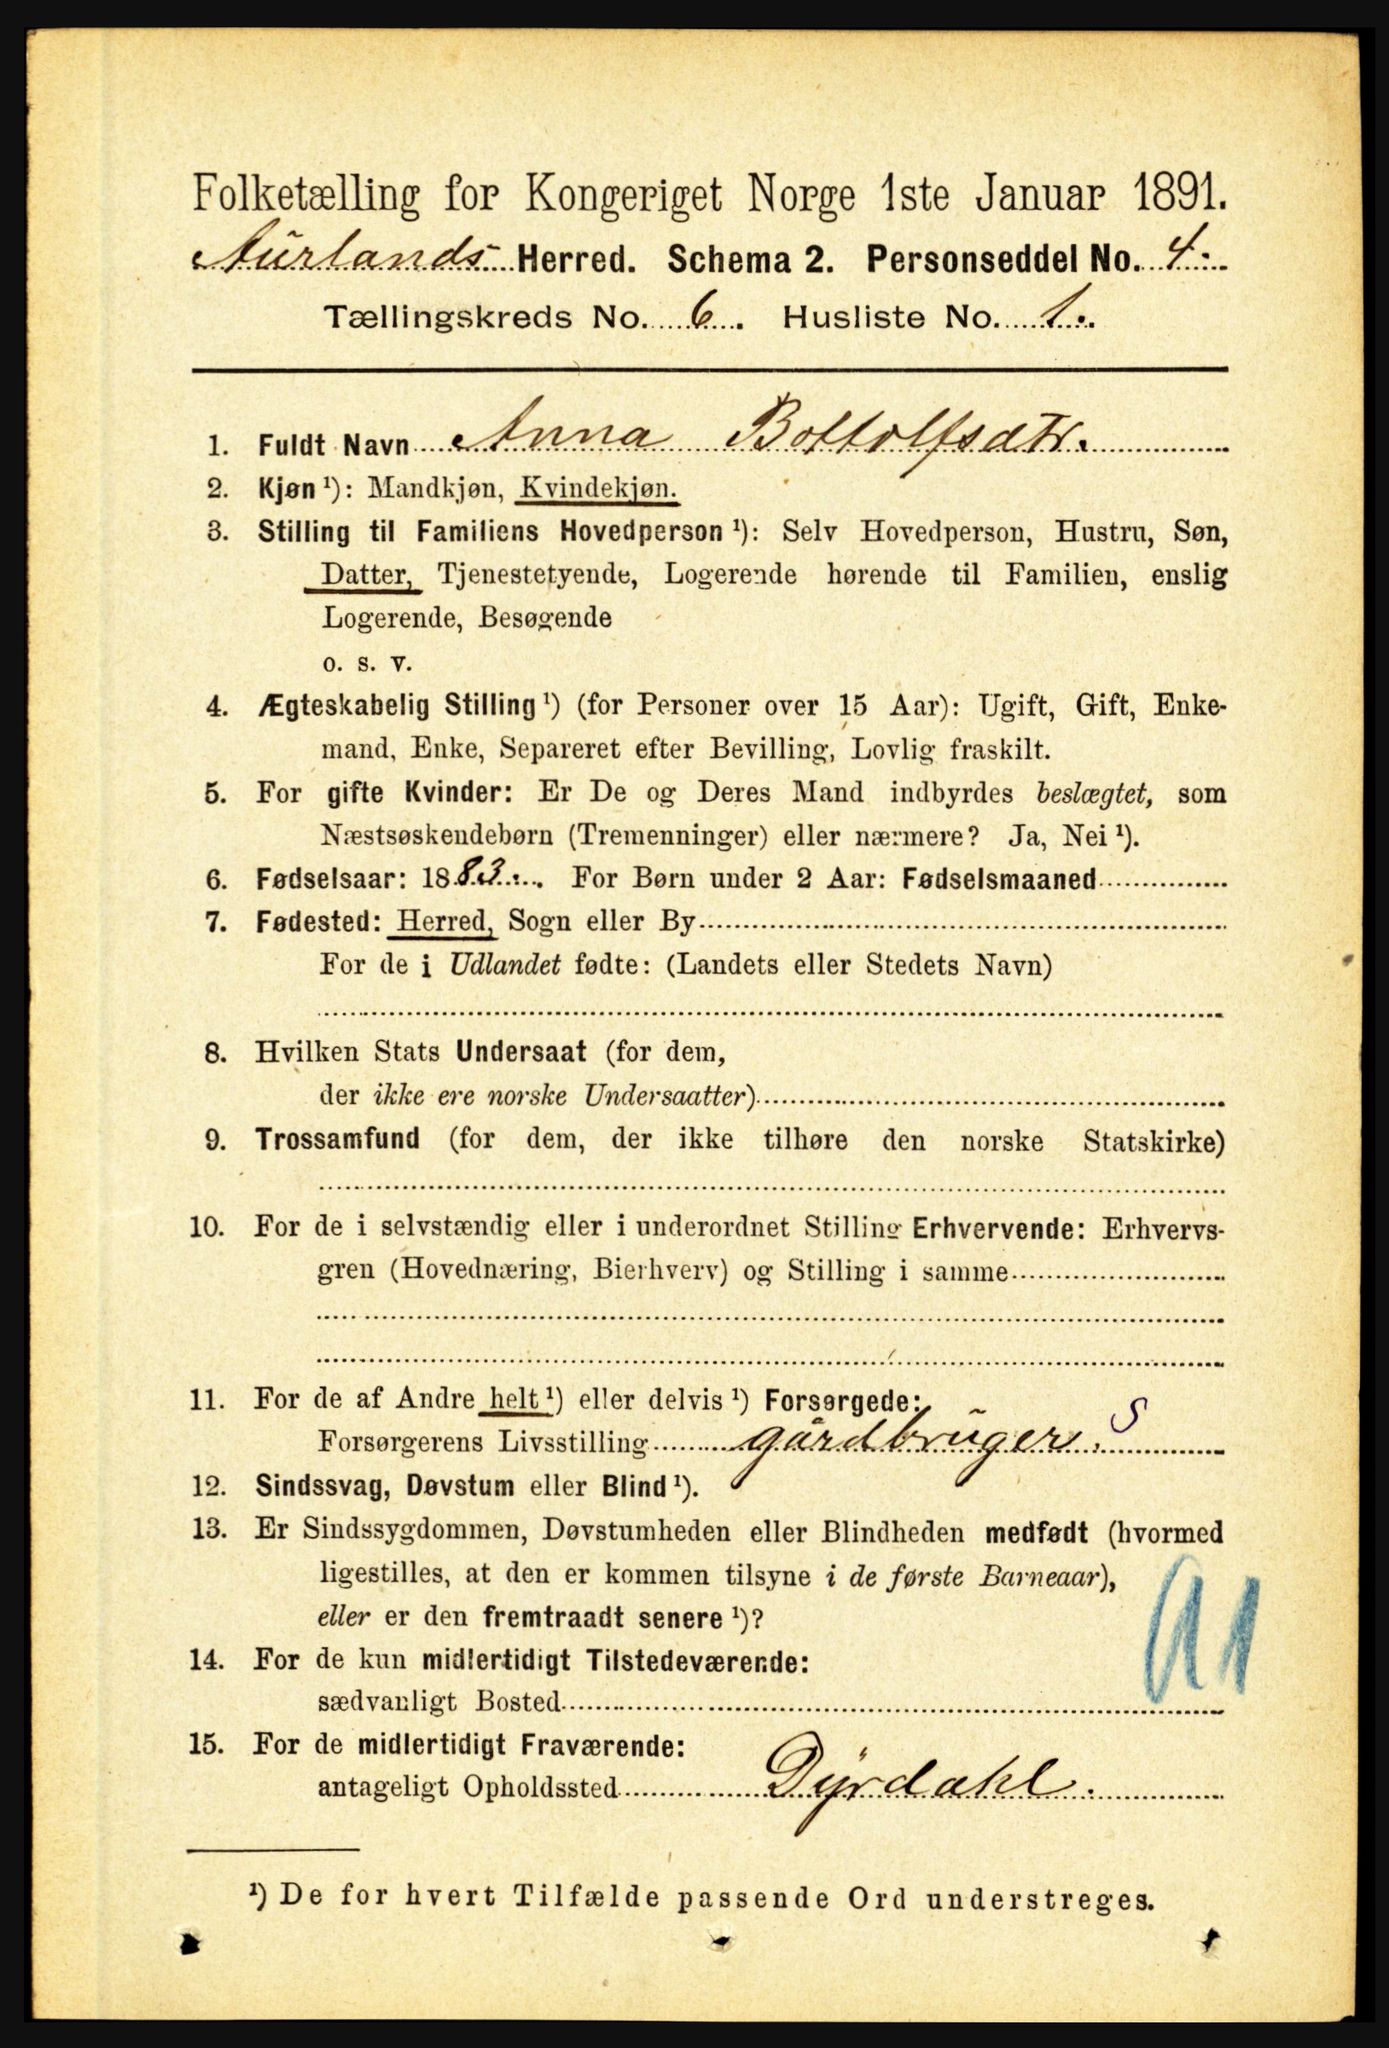 Folketælling for Kongeriget Norge 1ste Januar 1891.
Aurlands Herred. Schema 2. Personseddel No. 4.
Tællingskreds No. 6. Husliste No. 1.
1. Fuldt Navn Anna Bottolfsdtr.
2. Kjøn ¹): Mandkjøn, Kvindekjøn.
3. Stilling til Familiens Hovedperson ¹): Selv Hovedperson, Hustru, Søn,
Datter, Tjenestetyende, Logerende hørende til Familien, enslig
Logerende, Besøgende
o. s. v.
4. Ægteskabelig Stilling ¹) (for Personer over 15 Aar): Ugift, Gift, Enke-
mand, Enke, Separeret efter Bevilling, Lovlig fraskilt.
5. For gifte Kvinder: Er De og Deres Mand indbyrdes beslægtet, som
Næstsøskendebørn (Tremenninger) eller nærmere? Ja, Nei ¹).
6. Fødselsaar: 1883. For Børn under 2 Aar: Fødselsmaaned
7. Fødested: Herred, Sogn eller By
For de i Udlandet fødte: (Landets eller Stedets Navn)
8. Hvilken Stats Undersaat (for dem,
der ikke ere norske Undersaatter)
9. Trossamfund (for dem, der ikke tilhøre den norske Statskirke)
10. For de i selvstændig eller i underordnet Stilling Erhvervende: Erhvervs-
gren (Hovednæring, Bierhverv) og Stilling i samme
11. For de af Andre helt ¹) eller delvis ¹) Forsørgede:
Forsørgerens Livsstilling gårdbruger. S
12. Sindssvag, Døvstum eller Blind ¹).
13. Er Sindssygdommen, Døvstumheden eller Blindheden medfødt (hvormed
ligestilles, at den er kommen tilsyne i de første Barneaar),
eller er den fremtraadt senere ¹)?
14. For de kun midlertidigt Tilstedeværende:
sædvanligt Bosted
15. For de midlertidigt Fraværende:
antageligt Opholdssted Dyrdahl.
¹) De for hvert Tilfælde passende Ord understreges.